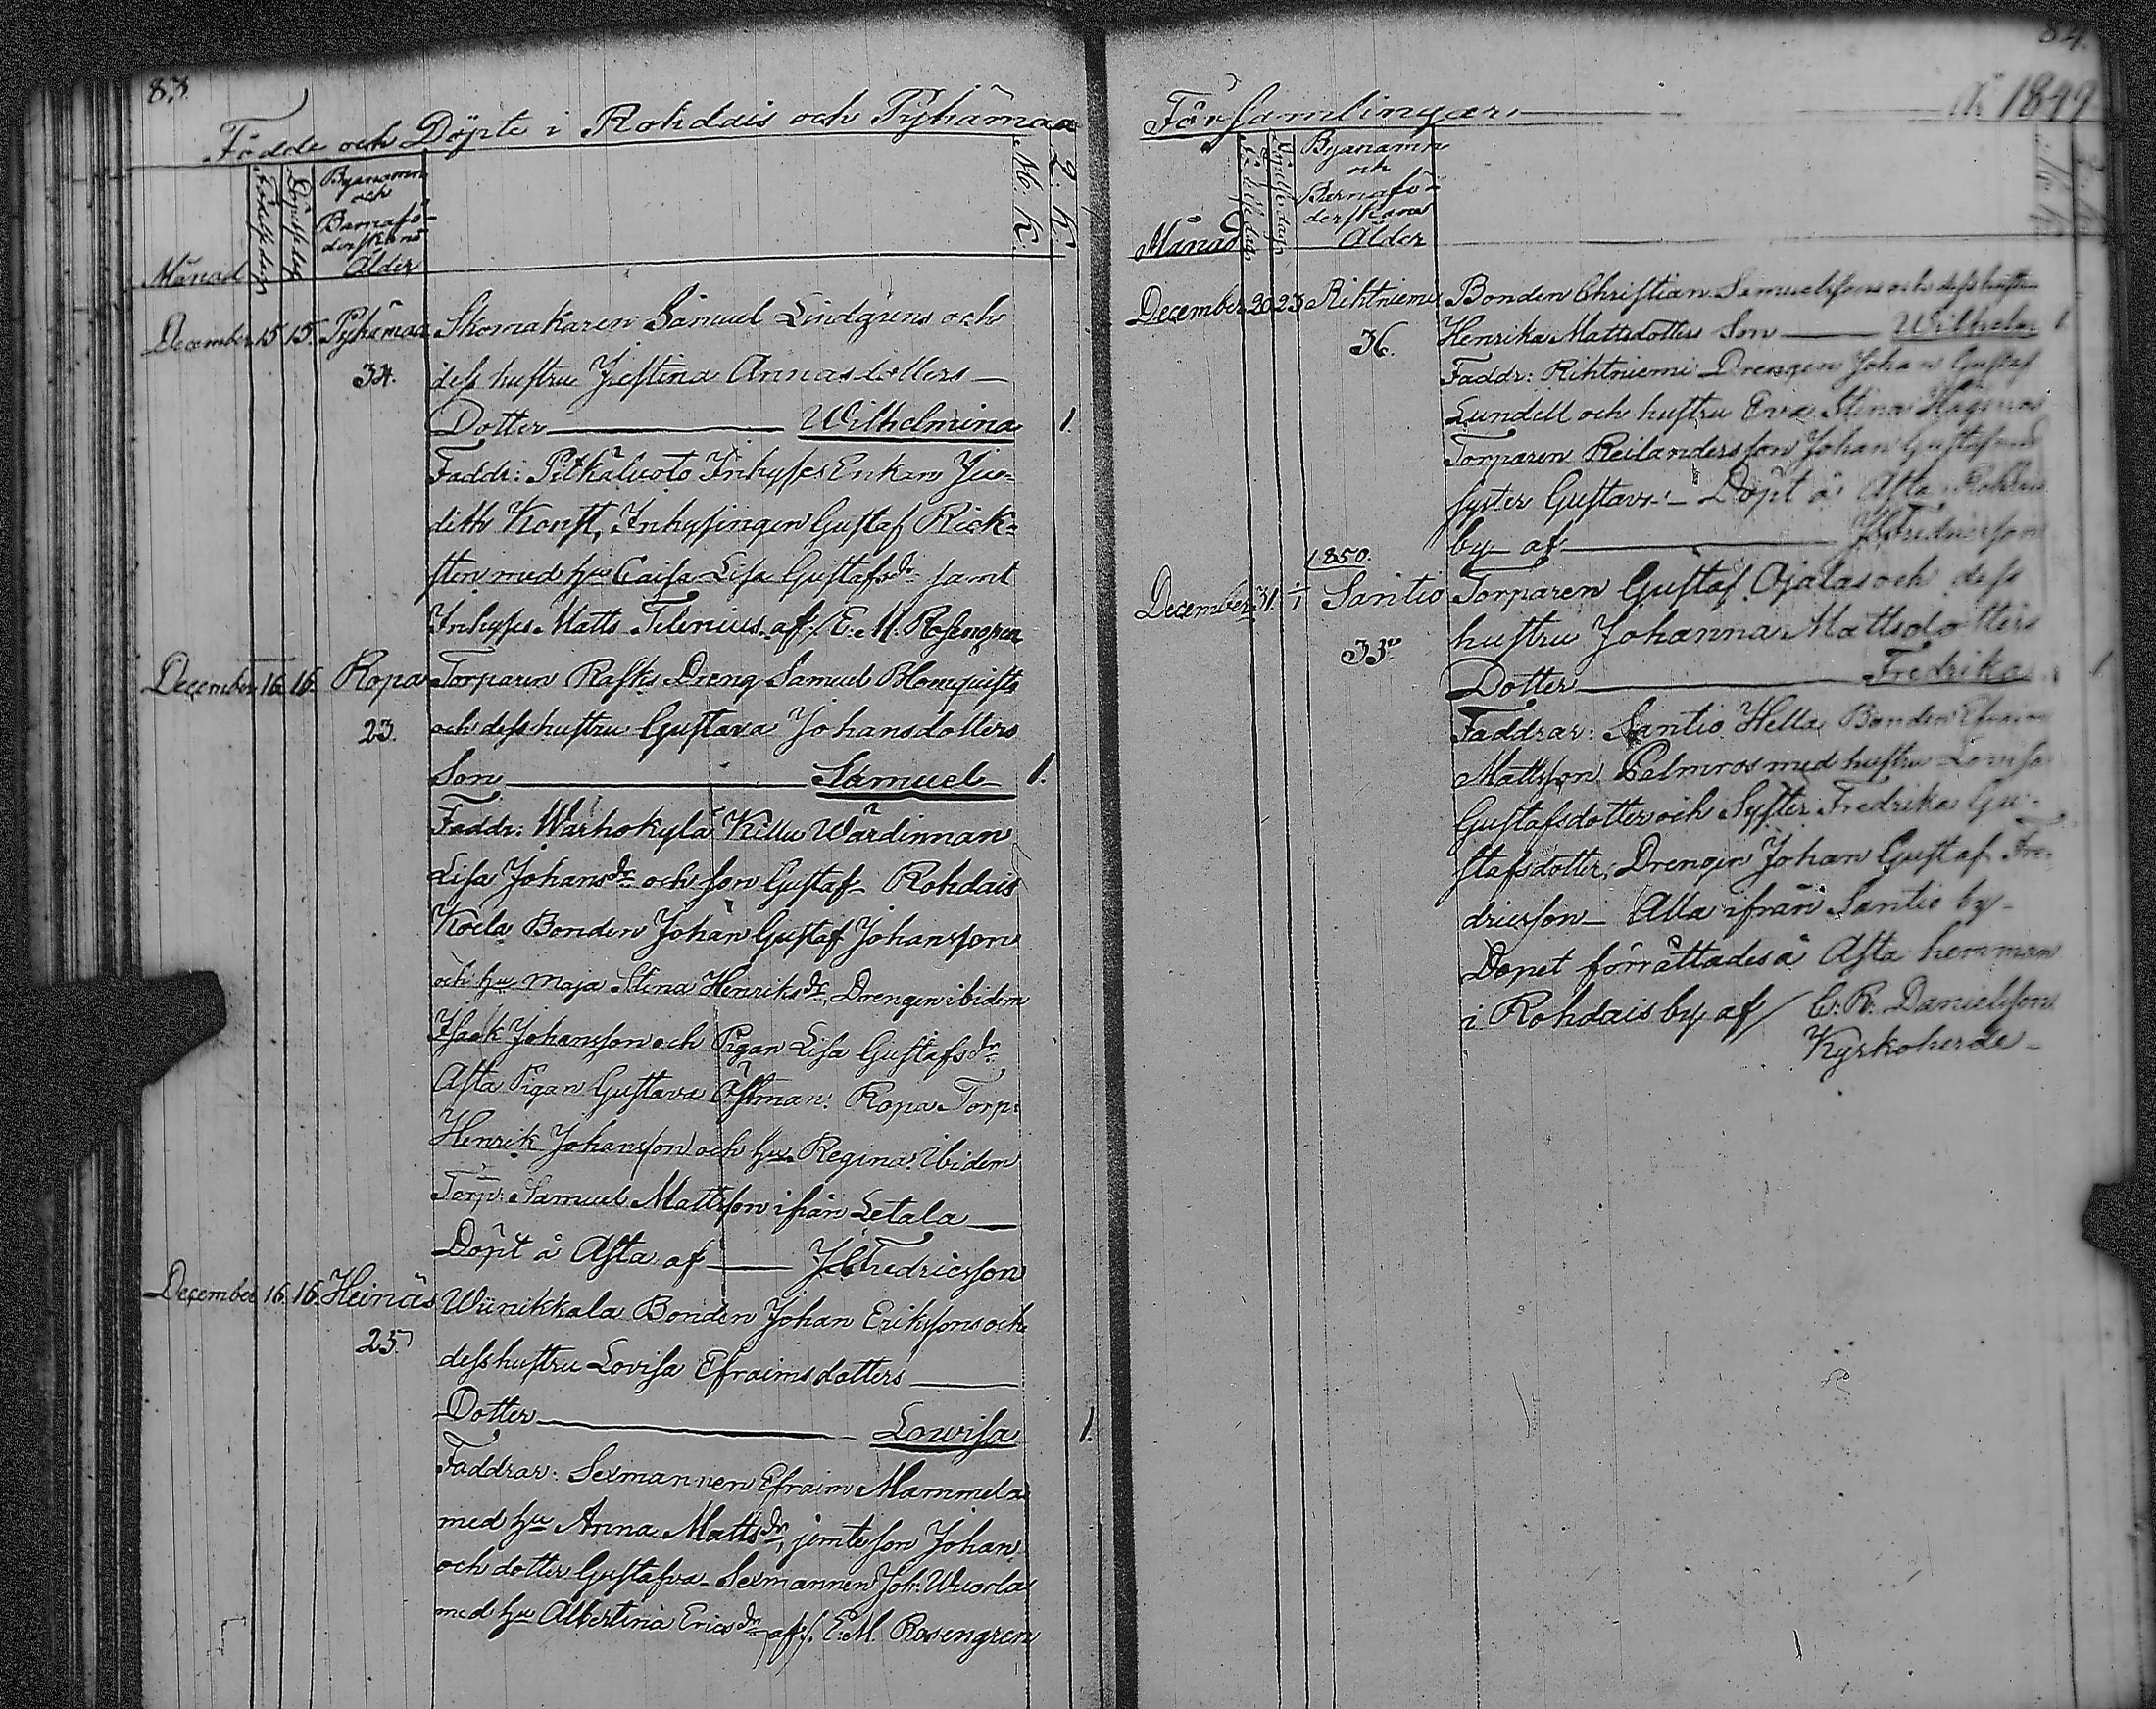 83.
Födde och Döpte i Rohdais och Pyhämaa
Månad
Födelsedag
Döpelsedag
Byanamn
och
Barnafö-
derskans
Ålder
M. K.
Q. K.
December 15 15. Pyhämaa Skomakaren Samuel Lindgrens och
34. dess hustru Justina Annasdotters —
Dotter — Wilhelmina 1.
Faddr: Pitkäluoto Inhyses Enkan Ju-
dith Konst, Inhysingen Gustaf Rick-
sten med hu Caisa Lisa Gustafsdr samt
Inhyses Matts Telenius. af/. E: M. Rosengren
December 16. 16. Ropa Torparen Rasks Dreng Samuel Blomquists
23. och dess hustru Gustava Johansdotters
Son — Samuel — 1.
Faddr: Warhokylä Killu Wärdinnan
Lisa Johansdr och son Gustaf. Rohdais
Koela Bonden Johan Gustaf Johansson
och hu Maja Stina Henriksdr, Drengen ibidem
Isaak Johansson och Pigan Lisa Gustafsdr
Asta Pigan Gustava Östman. Ropa Torp:
Henrik Johansson och hu Regina. Ibidem
Torp: Samuel Mattsson ifrån Letala —
Döpt å Asta af — J Fredricsson
December 16. 16. Heinäs Wünikkala Bonden Johan Erikssons och
25. dess hustru Lovisa Efraimsdotters —
Dotter — Lowisa 1.
Faddrar: Sexmannen Efraim Mammela
med hu Anna Mattsdr, jemte son Johan
och dotter Gustafva. Sexmannen Joh: Wuorla
med hu Albertina Ericsdr af/. E. M. Rosengren
84.
Församlingar — År 1849
Månad
Födelsedag
Döpelsedag
Byanamn
och
Barnafö-
derskans
Ålder
December 20 23 Rihtniemi Bonden Christian Samuelssons och dess hustru
36. Henrika Mattsdotters Son — Wilhelm 1
Faddr: Rihtniemi Drengen Johan Gustaf
Lundell och hustru Eva Stina
Torparen Reilanders son Johan Gustaf och
syster Gustava. — Döpt å Asta Rohdais
by af — J Fredricsson
1850.
December 31. 1/1 Santio Torparen Gustaf Ojalas och dess
33. hustru Johanna Mattsdotters
Dotter — Fredrika 1
Faddrar: Santio Hella Bonden Efraim
Mattsson Palmros med hustru Lovisa
Gustafsdotter och Syster Fredrika Gu-
stafsdotter, Drengen Johan Gustaf Fre-
dricsson — Alla ifrån Santio by —
Dopet förrättades å Asta hemman
i Rohdais by af/ C. R. Danielsson
Kyrkoherde —